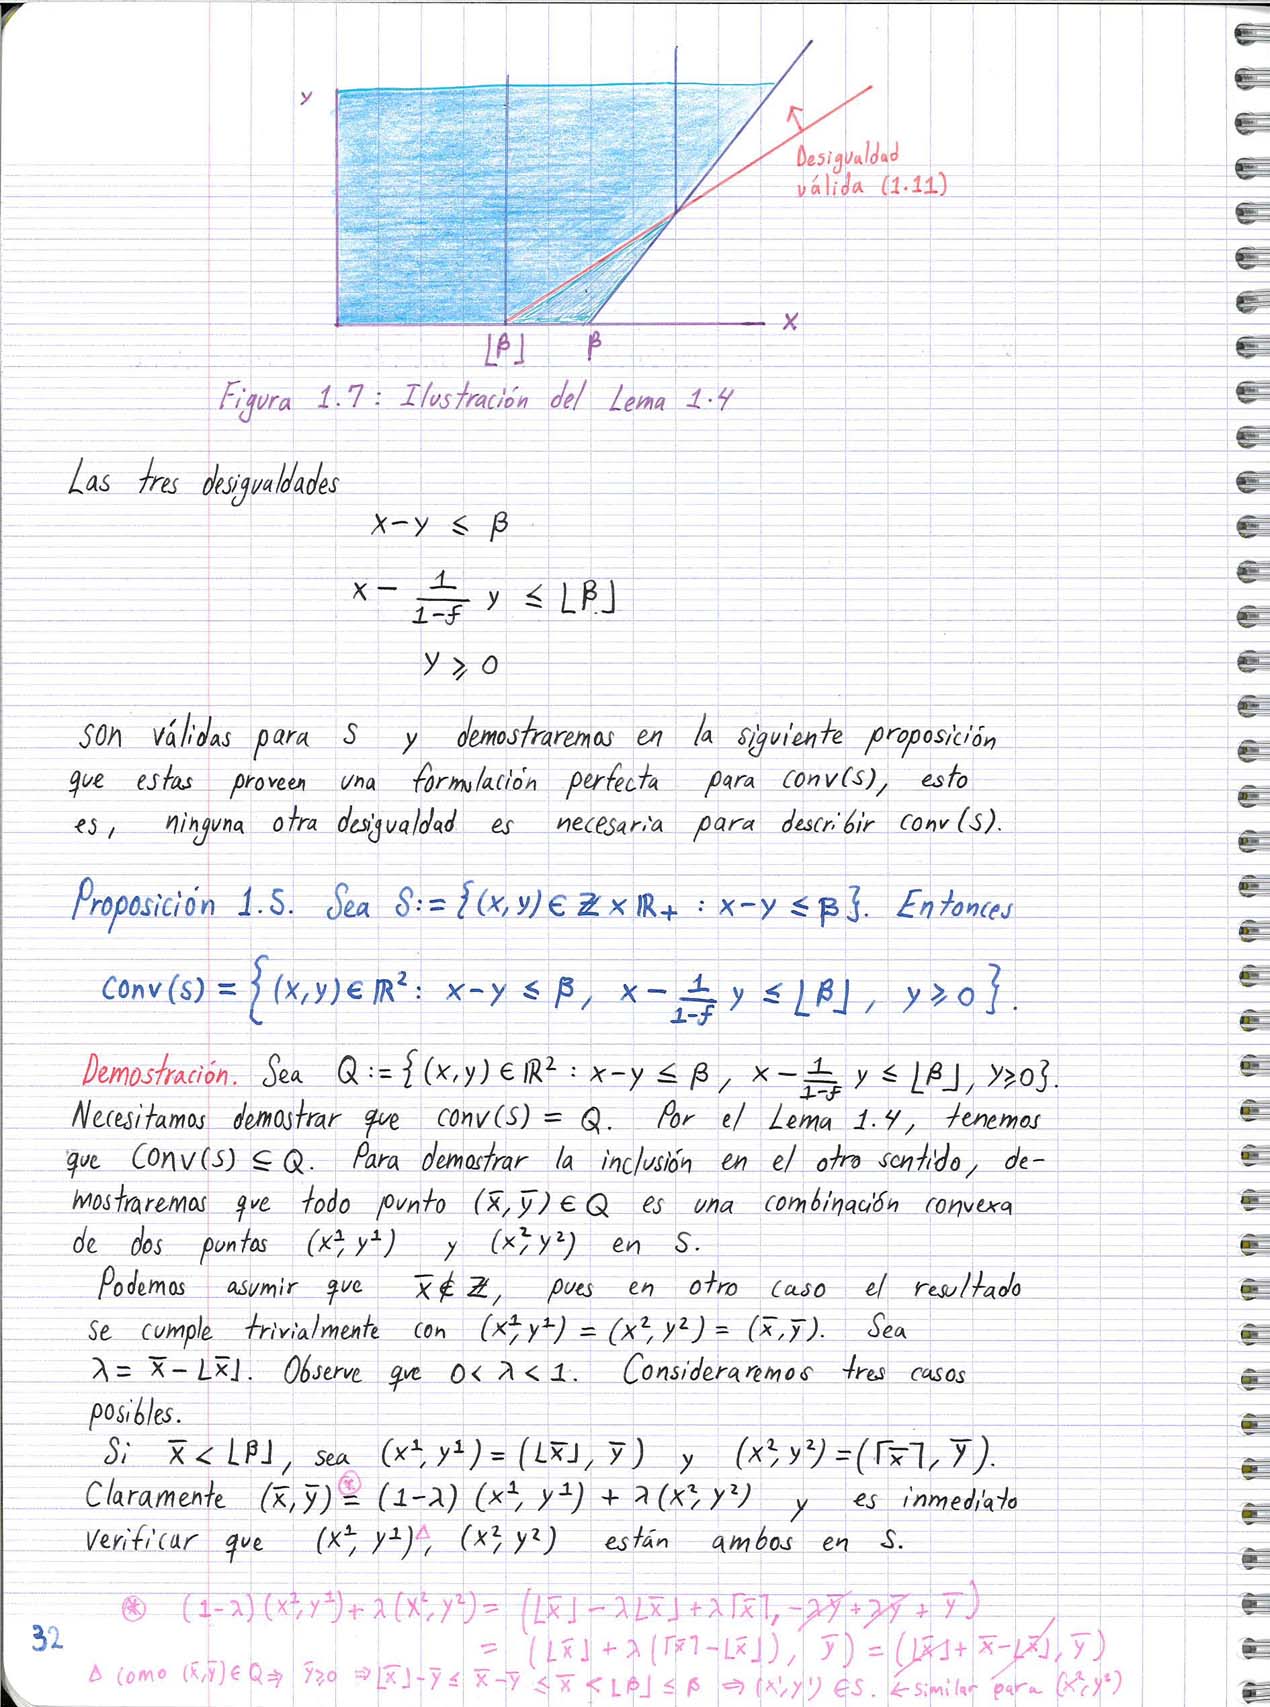 Y
Desigualdad
válida (1.11)
X
⌊β⌋ β
Figura 1.7: Ilustración del Lema 1.4
Las tres desigualdades
x-y ≤ β
x - 1/(1-f) y ≤ ⌊β⌋
y ≥ 0
son válidas para S y demostraremos en la siguiente proposición
que estas proveen una formulación perfecta para conv(S), esto
es, ninguna otra desigualdad es necesaria para describir conv(S).
Proposición 1.5. Sea S:= {(x,y) ∈ ℤ × ℝ₊ : x-y ≤ β}. Entonces
conv(S) = {(x,y) ∈ ℝ² : x-y ≤ β, x - 1/(1-f) y ≤ ⌊β⌋, y ≥ 0}.
Demostración. Sea Q := {(x,y) ∈ ℝ² : x-y ≤ β, x - 1/(1-f) y ≤ ⌊β⌋, y≥0}.
Necesitamos demostrar que conv(S) = Q. Por el Lema 1.4, tenemos
que conv(S) ⊆ Q. Para demostrar la inclusión en el otro sentido, de-
mostraremos que todo punto (x̄, ȳ) ∈ Q es una combinación convexa
de dos puntos (x¹, y¹) y (x², y²) en S.
Podemos asumir que x̄ ∉ ℤ, pues en otro caso el resultado
se cumple trivialmente con (x¹, y¹) = (x², y²) = (x̄, ȳ). Sea
λ = x̄ - ⌊x̄⌋. Observe que 0 < λ < 1. Consideraremos tres casos
posibles.
Si x̄ < ⌊β⌋, sea (x¹, y¹) = (⌊x̄⌋, ȳ) y (x², y²) = (⌈x̄⌉, ȳ).
Claramente (x̄, ȳ) =⊛ (1-λ) (x¹, y¹) + λ(x², y²) y es inmediato
verificar que (x¹, y¹)△, (x², y²) están ambos en S.
⊛ (1-λ)(x¹, y¹) + λ(x², y²) = (⌊x̄⌋ - λ⌊x̄⌋ + λ⌈x̄⌉, -λȳ + λȳ + ȳ)
32 = (⌊x̄⌋ + λ(⌈x̄⌉ - ⌊x̄⌋), ȳ) = (⌊x̄⌋ + x̄ - ⌊x̄⌋, ȳ)
△ como (x̄,ȳ) ∈ Q ⇒ ȳ≥0 ⇒ ⌊x̄⌋-ȳ ≤ x̄-ȳ ≤ x̄ < ⌊β⌋ ≤ β ⇒ (x¹,y¹) ∈ S. ← similar para (x²,y²)